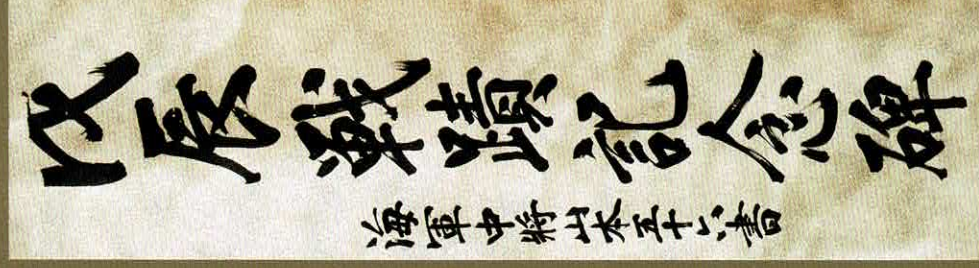 戊辰戦蹟記念碑
海軍中将山本五十六書